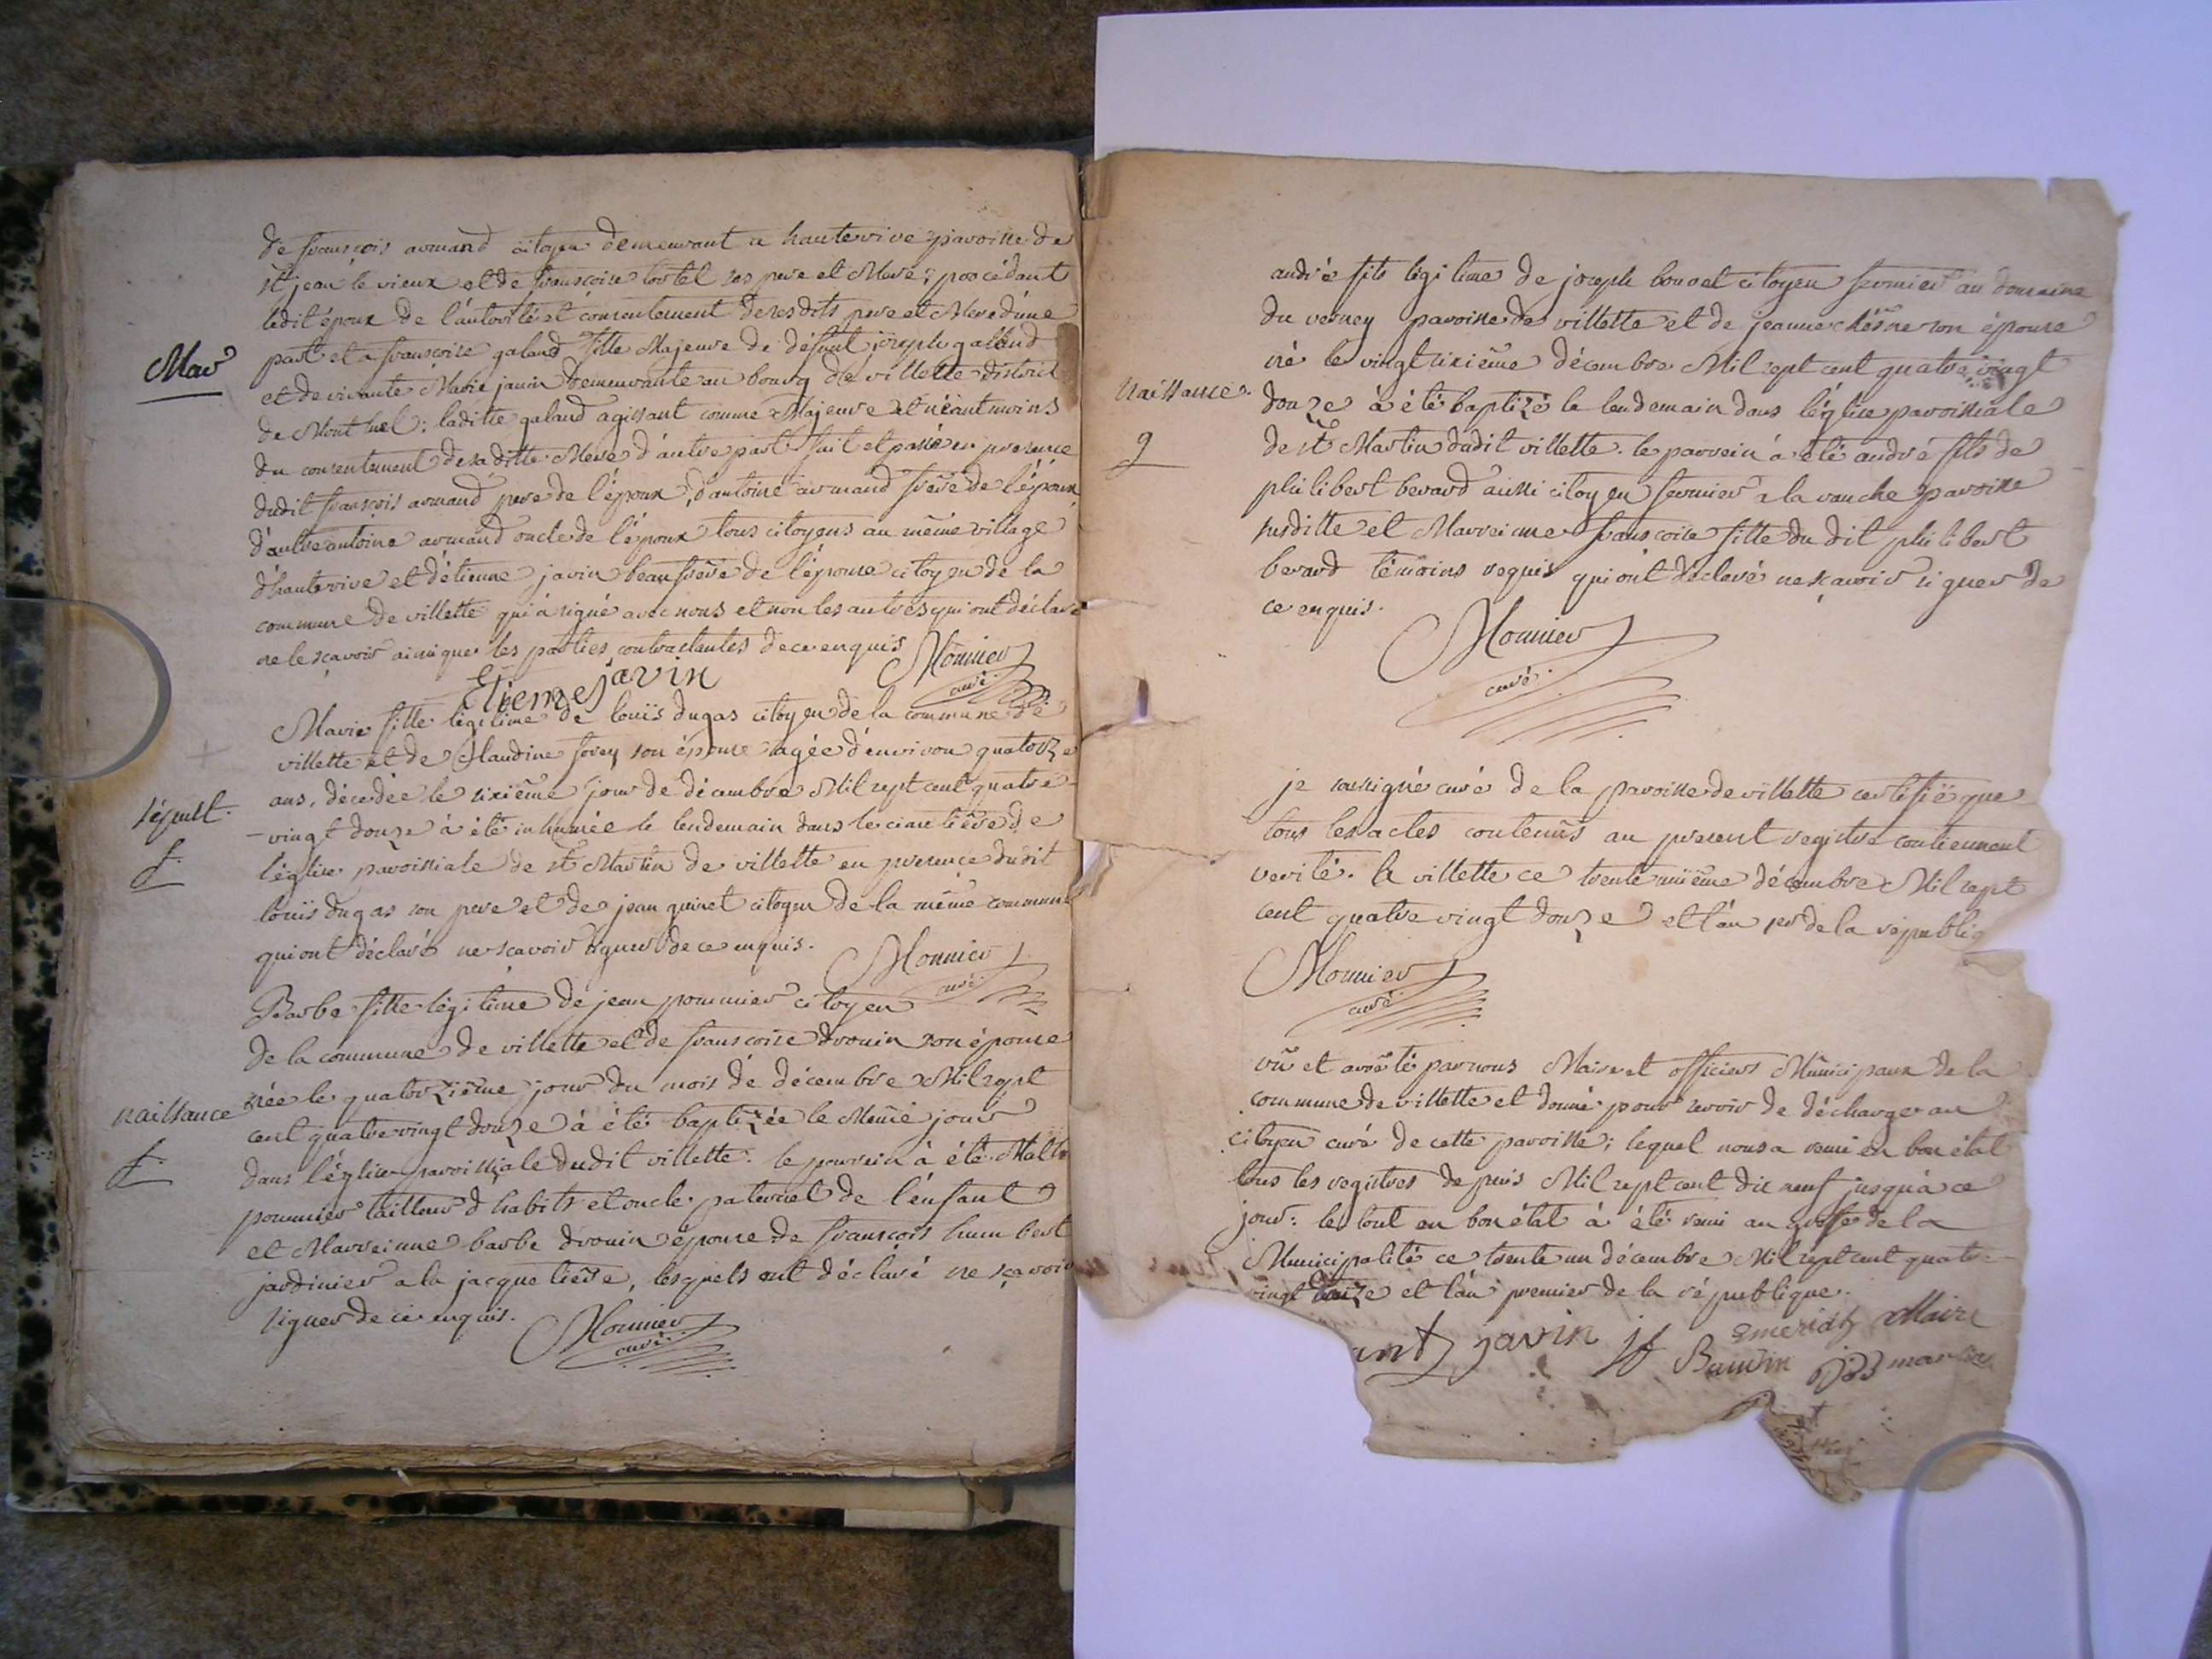 de françois armand citoyen demeurant a hauterive paroisse de
st jean le vieux et de françoise tortel ses pere et Mere; procédant
ledit époux de l'autorité et consentement de sesdits pere et Mere d'une
Mar
part et a françoise galand fille Majeure de défunt joseph galland
et de vivante Marie janin demeurante au bourg de villette district
de Montluel; laditte galand agissant comme Majeure et néantmoins
du consentement de saditte Mere d'autre part. fait et passé en presence
dudit françois armand pere de l'époux, d'antoine armand frère de l'époux
d'autre antoine armand oncle de l'époux tous citoyens au même village
d'hauterive et d'étienne javin beaufrère de l'épouse citoyen de la
commune de villette qui à signé avec nous et non les autres qui ont déclaré
ne le sçavoir ainsi que les parties contractantes de ce enquis
Etienne javin Monnier curé
Marie fille légitime de louis dugas citoyen de la commune de
villette et de Claudine forey son épouse agée d'environ quatorze
ans, décedée le sixième jour de décembre Mil sept cent quatre
Sépult.
-vingt douze à été inhumée le lendemain dans le cimetière de
f.
l'église paroissiale de st Martin de villette en presence dudit
louis dugas son pere et de jean quinet citoyen de la même commune
qui ont déclaré ne scavoir signer de ce enquis. Monnier curé
Barbe fille légitime de jean pommier citoyen
de la commune de villette et de françoise drouin son épouse
née le quatorzième jour du mois de décembre Mil sept
naissance
cent quatre vingt douze à été baptizée le Même jour
f.
dans l'église paroissiale dudit villette. le parrein à été
pommier tailleur d'habits et oncle paternel de l'enfant
et Marreinne barbe drouin épouse de françois humbert
jardinier a la jacquetière, lesquels ont déclaré ne sçavoir
signer de ce enquis. Monnier curé
andré fils légitime de joseph bouvet citoyen fermier au domaine
du verney paroisse de villette et de jeanne chêsne son épouse
né le vingt sixième décembre Mil sept cent quatre vingt
Naissance.
douze à été baptizé le lendemain dans l'église paroissiale
g
de st Martin dudit villette. le parrein à été andré fils de
philibert berard aussi citoyen fermier a la ranche paroisse
susditte et Marreinne françoise fille du dit philibert
berard témoins requis qui ont déclaré ne sçavoir signer de
ce enquis.
Monnier
curé
je soussigné curé de la paroisse de villette certifie que
tous les actes contenus au present registre contiennent
verité. a villette ce trente unième décembre Mil sept
cent quatre vingt douze et l'an 1er de la républiq
Monnier
curé
vû et arrêté par nous Maire et officiers Municipaux de la
commune de villette et donné pour servir de décharge au
citoyen curé de cette paroisse; lequel nous a remi en bon état
tous les registres depuis Mil sept cent dix neuf jusqu'à ce
jour: le tout en bon état à été remi au greffe de la
Municipalité ce trente un décembre Mil sept cent quatre
vingt douze et l'an premier de la république.
Maire
ant javin